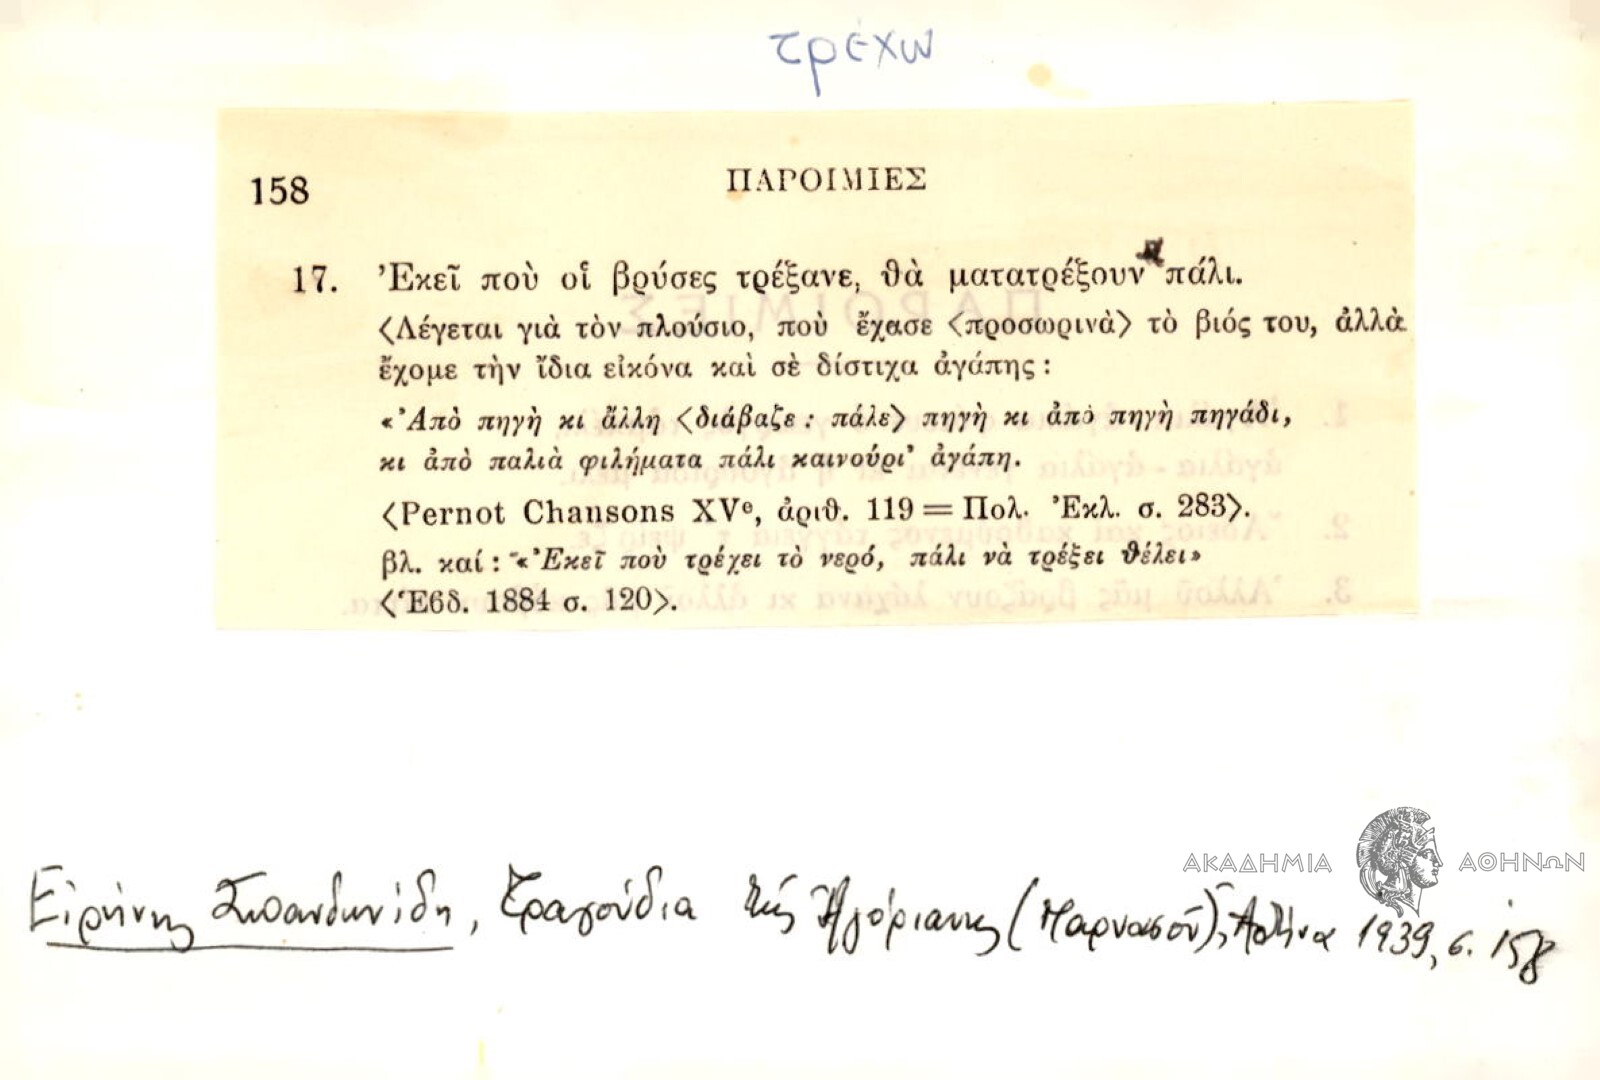 τρέχω
158 ΠΑΡΟΙΜΙΕΣ
17. Ἐκεῖ ποὺ οἱ βρύσες τρέξανε, θὰ ματατρέξουν πάλι.
<Λέγεται γιὰ τὸν πλούσιο, ποὺ ἔχασε <προσωρινὰ> τὸ βιός του, ἀλλὰ
ἔχομε τὴν ἴδια εἰκόνα καὶ σὲ δίστιχα ἀγάπης :
«Ἀπὸ πηγὴ κι ἄλλη <διάβαζε : πάλε> πηγὴ κι ἀπὸ πηγὴ πηγάδι,
κι ἀπὸ παλιὰ φιλήματα πάλι καινούρι' ἀγάπη.
<Pernot Chansons XVᵉ, ἀριθ. 119 = Πολ. Ἐκλ. σ. 283>.
βλ. καί : «Ἐκεῖ ποὺ τρέχει τὸ νερό, πάλι νὰ τρέξει θέλει»
<Ἑβδ. 1884 σ. 120>.
ΑΚΑΔΗΜΙΑ ΑΘΗΝΩΝ
Εἰρήνης Σπανδωνίδη, Τραγούδια τῆς Ἀγόριανης (Παρνασοῦ), Ἀθήνα 1939, σ. 158